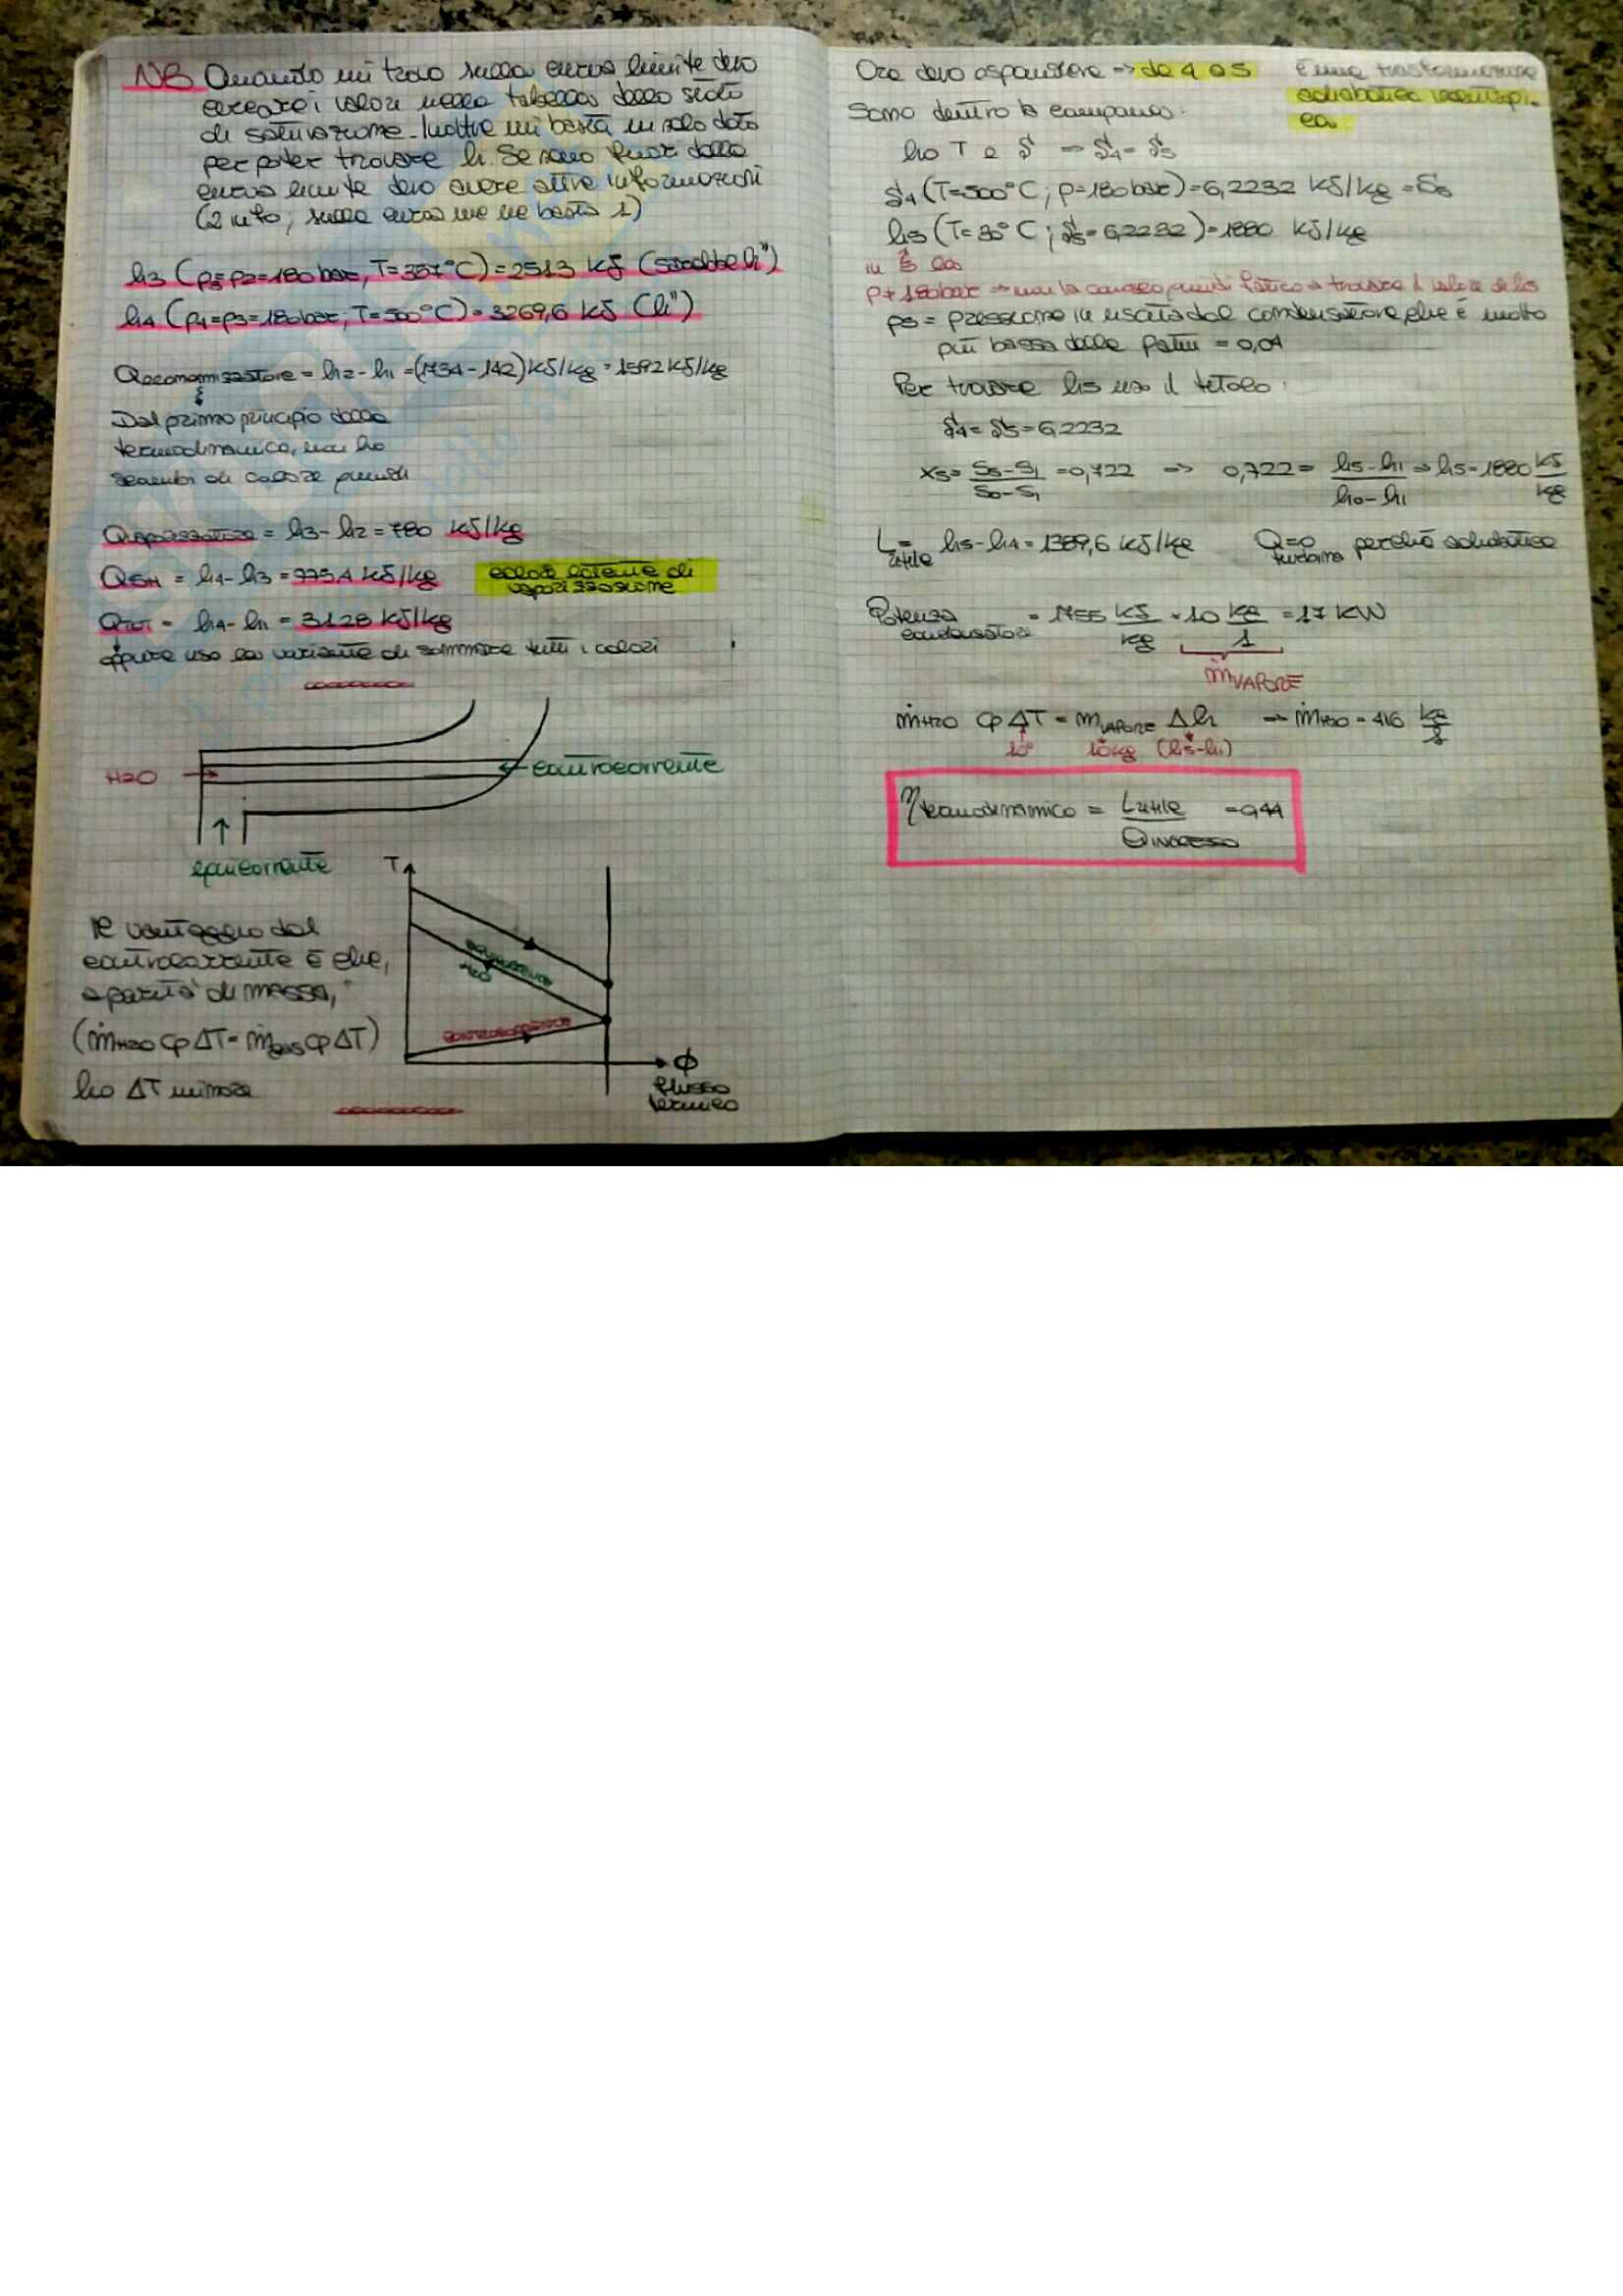 NB Quando mi trovo sulla curva limite devo
cercare i valori nella tabella dello stato
di saturazione. Inoltre mi basta un solo dato
per poter trovare h. Se sono fuori dalla
curva limite devo avere altre informazioni
(2 info; sulla curva me ne basta 1)
h3 (p3=p2=180 bar, T=357°C) = 2513 kJ (sarebbe h")
h4 (p4=p3=180bar; T=500°C) = 3269,6 kJ (h")
Qeconomizzatore = h2-h1 = (1734-142) kJ/kg = 1592 kJ/kg
Dal primo principio della
termodinamica, non ho
scambi di calore quindi
Qvaporizzatore = h3-h2 = 780 kJ/kg
QSH = h4-h3 = 775,4 kJ/kg
calore latente di
vaporizzazione
QTOT = h4-h1 = 3128 kJ/kg
oppure uso la variante di sommare tutti i calori
H2O
controcorrente
equicorrente
T
equicorrente
H2O
controcorrente
Φ
flusso
termico
Il vantaggio del
controcorrente è che,
a parità di massa,
(ṁH2O cp ΔT = ṁgas cp ΔT)
ho ΔT minore
Ora devo espandere → da 4 a 5 È una trasformazione
adiabatica isentropi-
ca
Sono dentro la campana:
ho T e S → S4 = S5
S4 (T=500°C; p=180bar) = 6,2232 kJ/kg = S5
h5 (T=30°C; S5=6,2232) = 1880 kJ/kg
in 5 la
p≠180bar → non la conosco quindi fatico a trovare il valore di h5
p5 = pressione in uscita dal condensatore che è molto
più bassa della patm = 0,04
Per trovare h5 uso il titolo:
S4 = S5 = 6,2232
x5 = S5-S1 / S0-S1 = 0,722 → 0,722 = h5-h1 / h0-h1 → h5 = 1880 kJ/kg
Lutile = h5-h4 = 1389,6 kJ/kg Q=0 turbina perchè adiabatica
Potenza condensatore = 1755 kJ/kg · 10 kg/1 = 17 kW
ṁVAPORE
ṁH2O cp ΔT = ṁVAPORE Δh → ṁH2O = 416 kg/s
10° 10kg (h5-h1)
ηtermodinamico = Lutile / QINGRESSO = 0,44